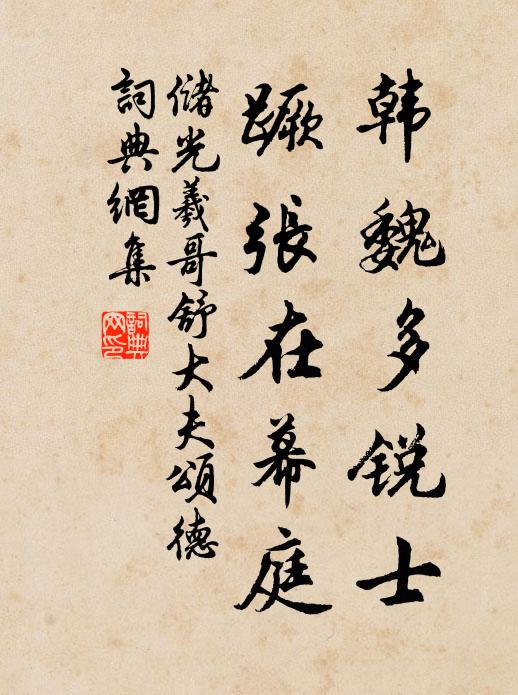 韩魏多锐士
蹶張在幕庭
储光羲哥舒大夫頌德
詞典網集
詞典網印